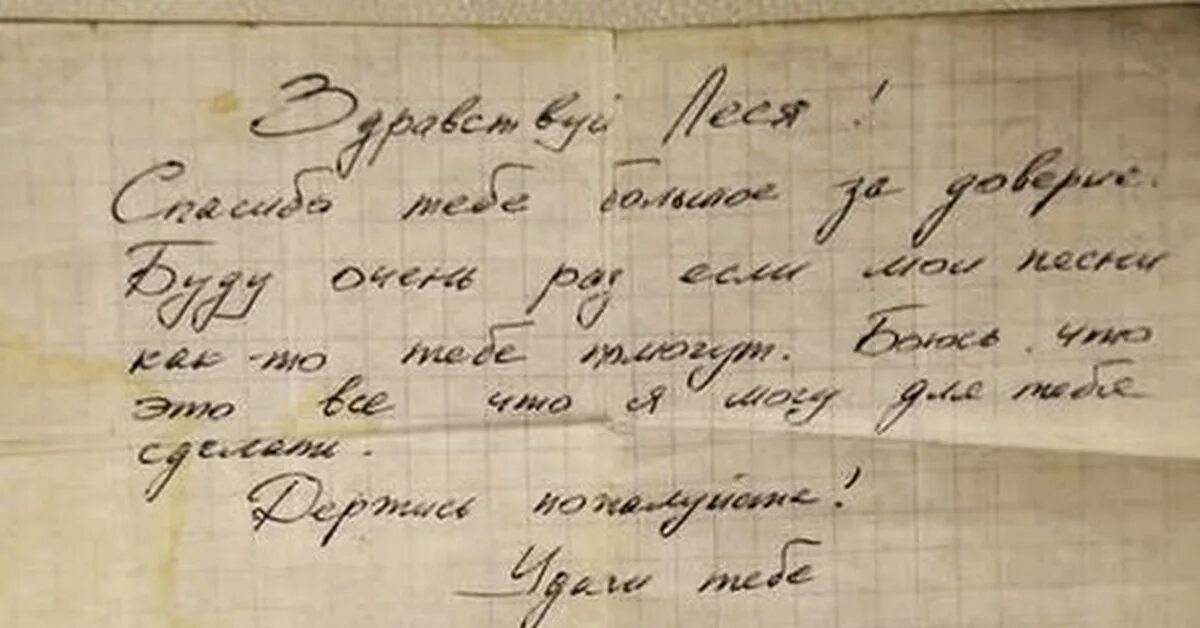 Здравствуй Леся!
Спасибо тебе большое за доверие.
Буду очень рад если мои песни
как-то тебе помогут. Боюсь, что
это все что я могу для тебя
сделать.
Держись пожалуйста!
Удачи тебе